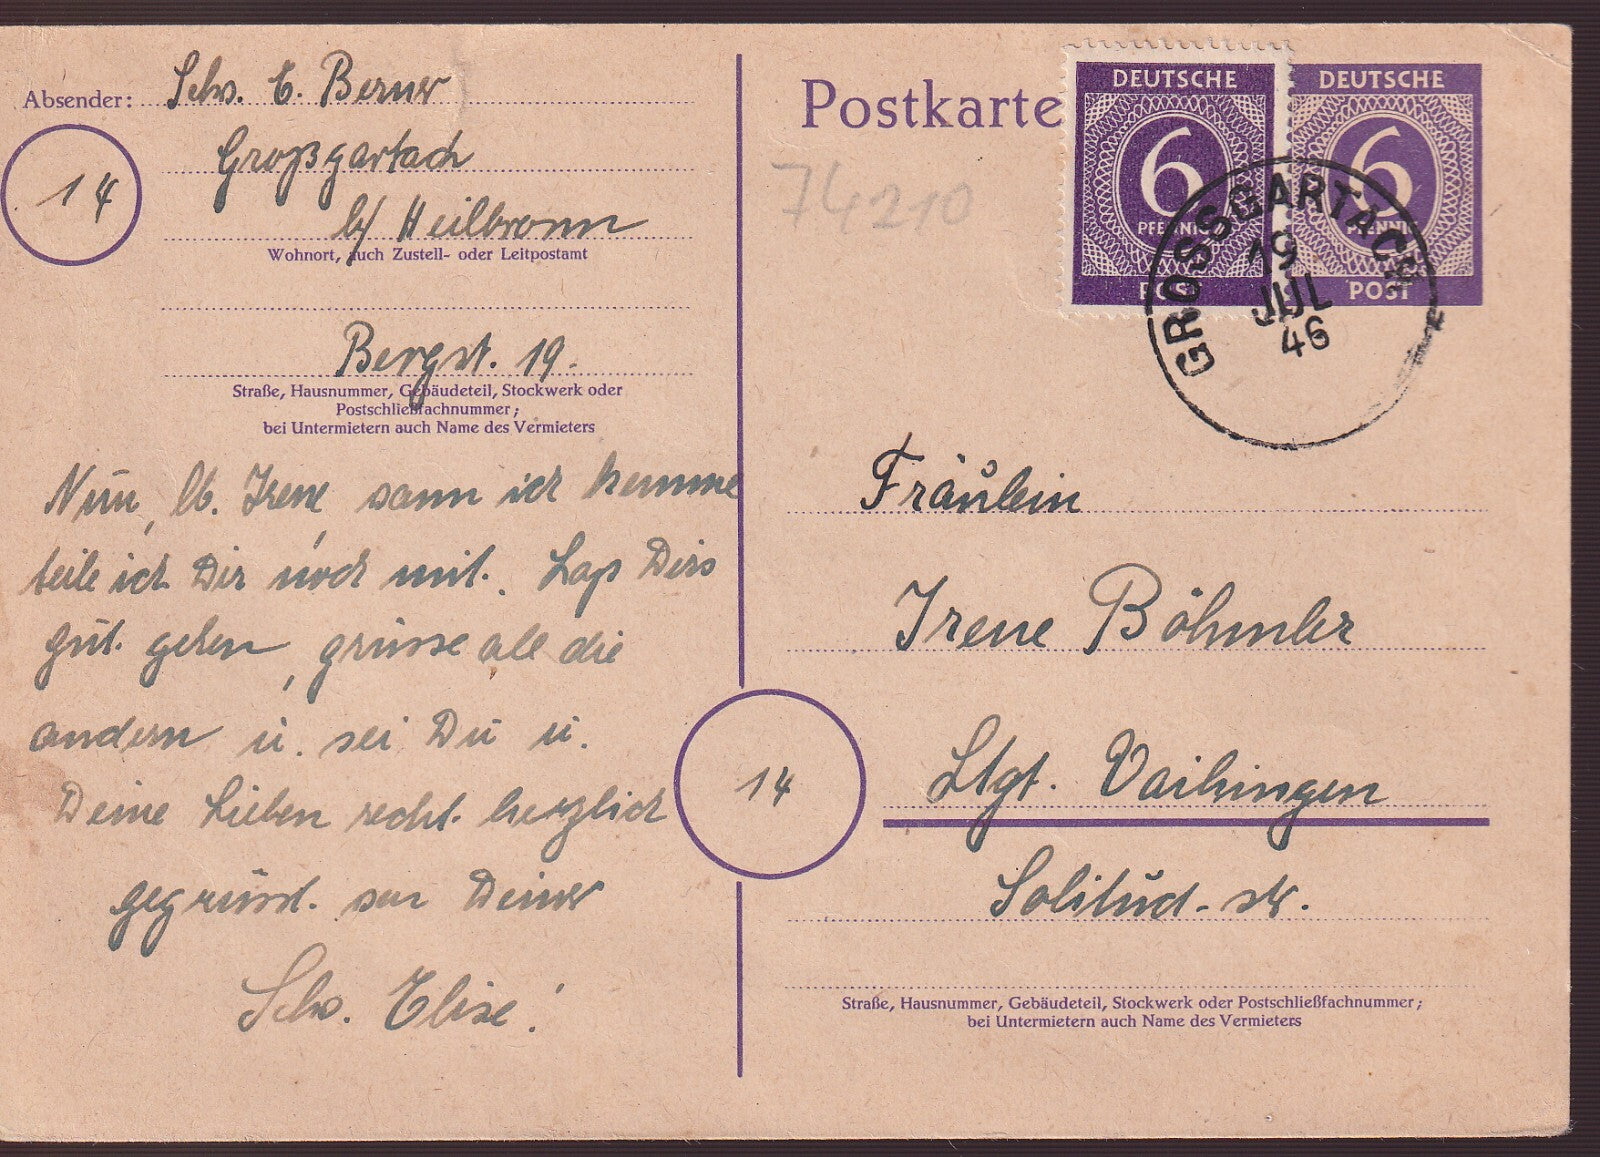 Absender: Schw. E. Berner
Großgartach
b/ Heilbronn
Wohnort, auch Zustell- oder Leitpostamt
14
Bergst. 19.
Straße, Hausnummer, Gebäudeteil, Stockwerk oder
Postschließfachnummer;
bei Untermietern auch Name des Vermieters
Nun, lb. Irene, wann ich komme
teile ich Dir noch mit. Lass Dirs
gut gehen, grüsse all die
andern u. sei Du u.
Deine Lieben recht herzlich
gegrüsst. von Deiner
Schw. Elise!
Postkarte
74210
DEUTSCHE
6
PFENNIG
POST
DEUTSCHE
6
PFENNIG
POST
GROSSGARTACH
19
JUL
46
Fräulein
Irene Böhmler
14
Stgt. Vaihingen
Solitud-str.
Straße, Hausnummer, Gebäudeteil, Stockwerk oder Postschließfachnummer;
bei Untermietern auch Name des Vermieters